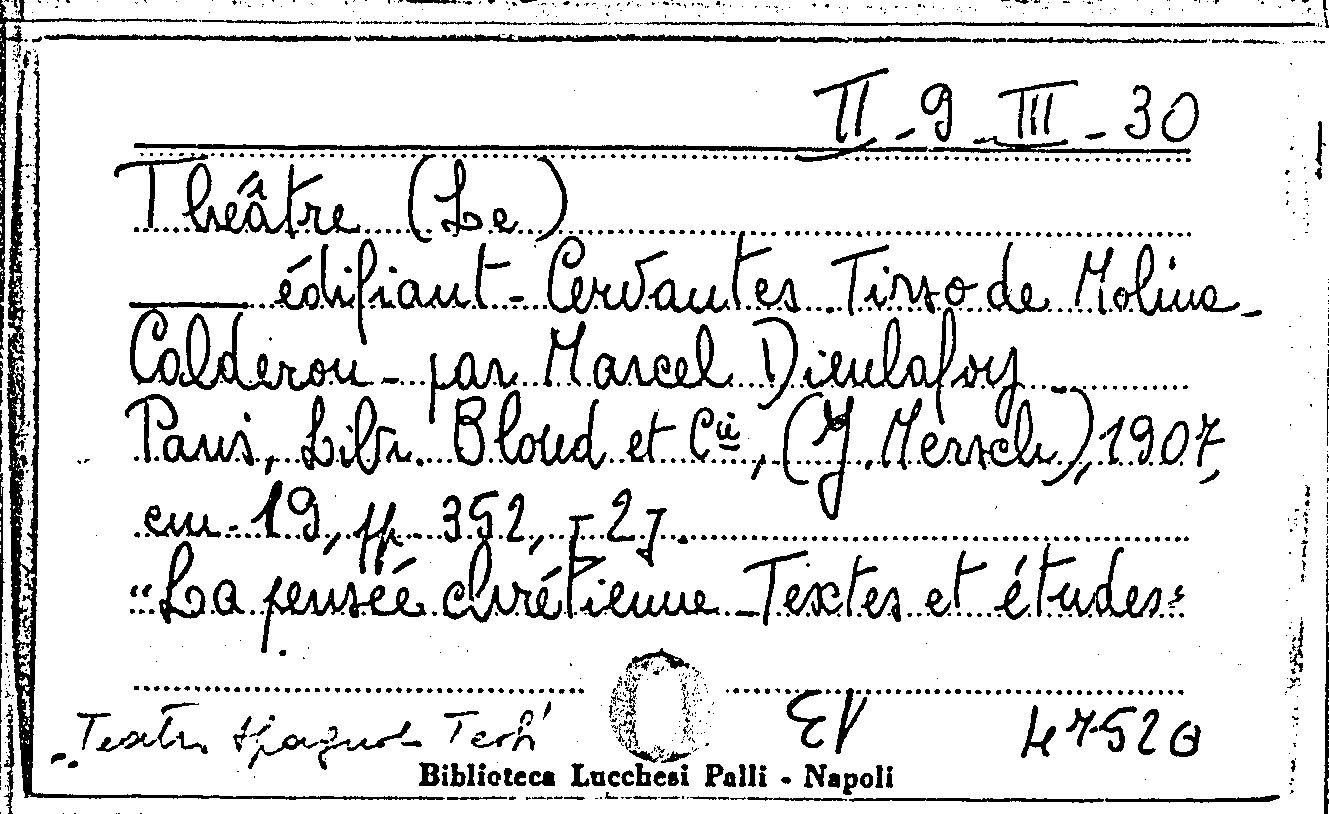 II - 9 - III - 30
Théâtre (Le)
édifiant - Cervantes Tirso de Molina -
Calderon - par Marcel Dieulafoy
Paris, Libr. Bloud et Cie, (J. Mersch), 1907,
cm. 19, pp. 352, - 27.
"La pensée chrétienne - Textes et études"
EV 47520
Teatro spagnolo Testi
Biblioteca Lucchesi Palli - Napoli